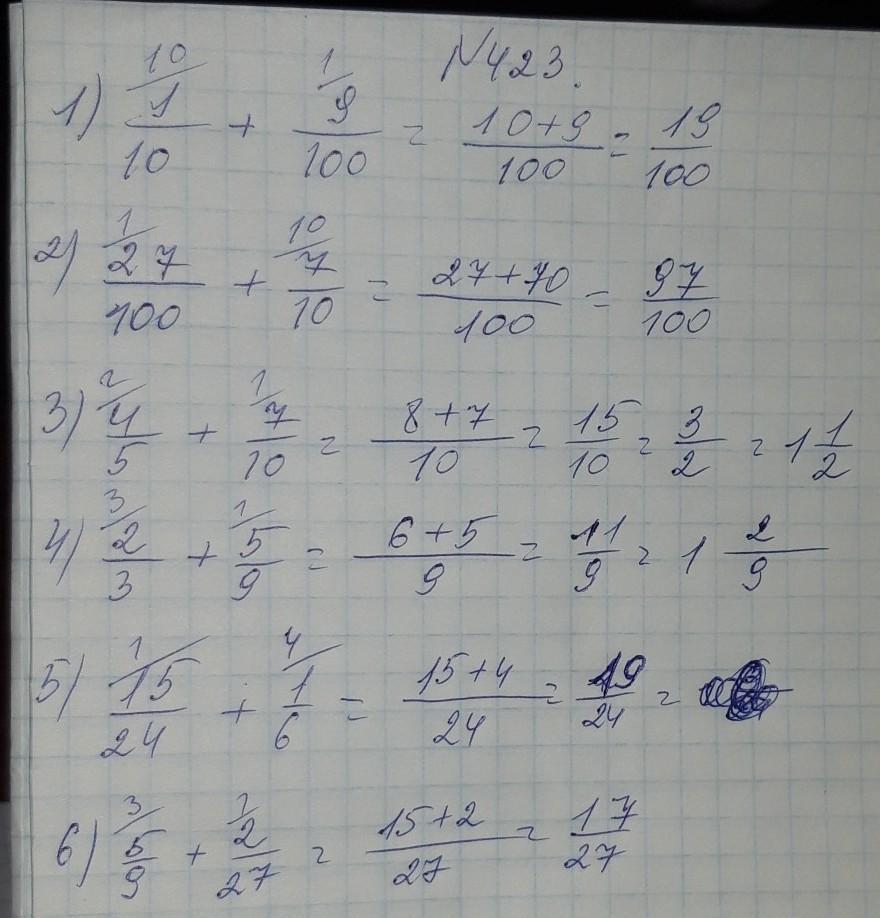 N423.
1) 10/ 1/10 + 1/ 9/100 = (10+9)/100 = 19/100
2) 1/ 27/100 + 10/ 7/10 = (27+70)/100 = 97/100
3) 2/ 4/5 + 1/ 7/10 = (8+7)/10 = 15/10 = 3/2 = 1 1/2
4) 3/ 2/3 + 1/ 5/9 = (6+5)/9 = 11/9 = 1 2/9
5) 1/ 15/24 + 4/ 1/6 = (15+4)/24 = 19/24 =
6) 3/ 5/9 + 1/ 2/27 = (15+2)/27 = 17/27